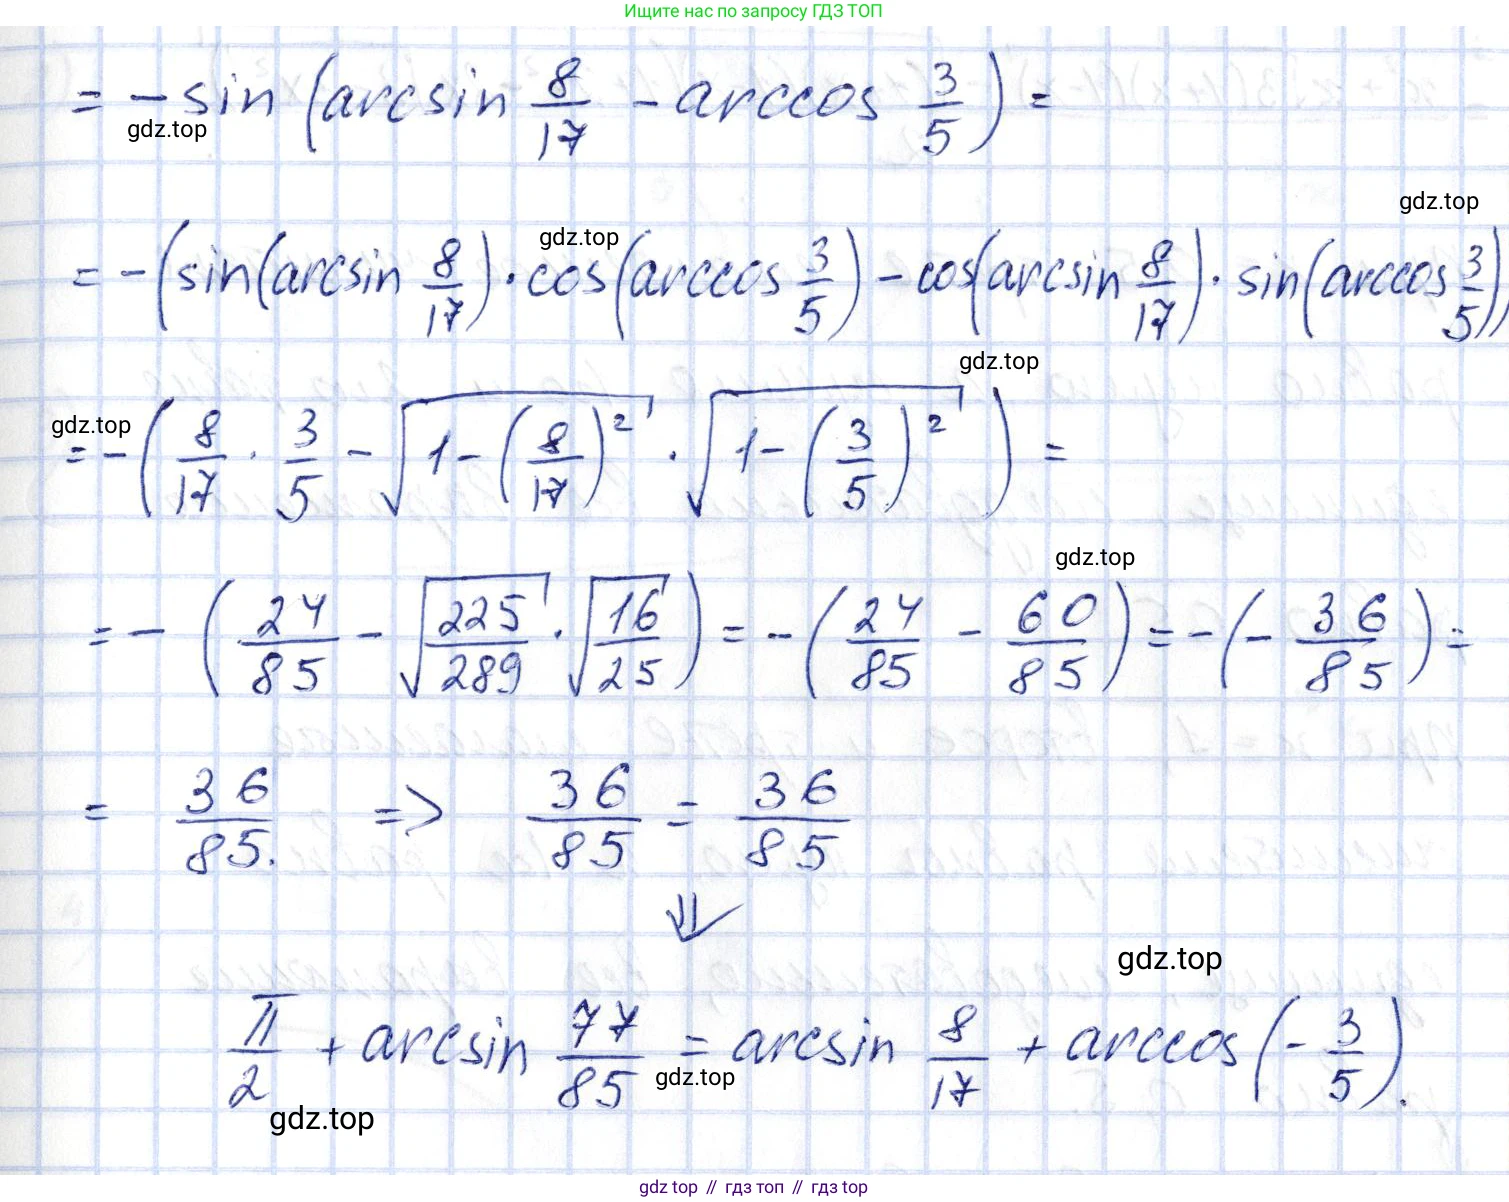 Ищите нас по запросу ГДЗ ТОП
= - sin (arcsin 8/17 - arccos 3/5) =
gdz.top
gdz.top
= - (sin(arcsin 8/17) · cos(arccos 3/5) - cos(arcsin 8/17) · sin(arccos 3/5))
gdz.top
gdz.top
gdz.top
= - (8/17 · 3/5 - √(1 - (8/17)²) · √(1 - (3/5)²)) =
gdz.top
= - (24/85 - √(225/289) · √(16/25)) = - (24/85 - 60/85) = - (- 36/85) =
= 36/85. => 36/85 = 36/85
⇓
gdz.top
π/2 + arcsin 77/85 = arcsin 8/17 + arccos (- 3/5).
gdz.top
gdz.top
gdz top // гдз топ // гдз top